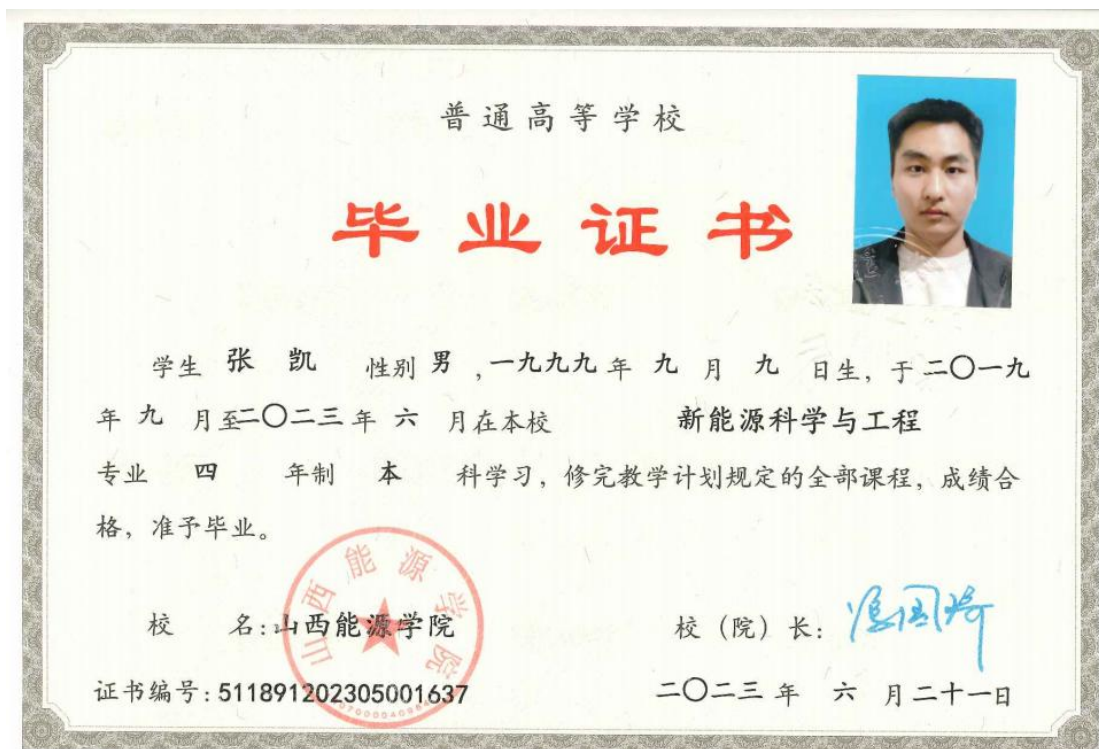 普通高等学校
毕业证书
学生 张 凯 性别 男 ,一九九九 年 九 月 九 日生, 于 二〇一九
年 九 月至二〇二三 年 六 月在本校 新能源科学与工程
专业 四 年制 本 科学习, 修完教学计划规定的全部课程, 成绩合
格, 准予毕业。
山西能源学院
校 名:山西能源学院 校 (院) 长:
证书编号: 511891202305001637 二〇二三 年 六 月 二十一日